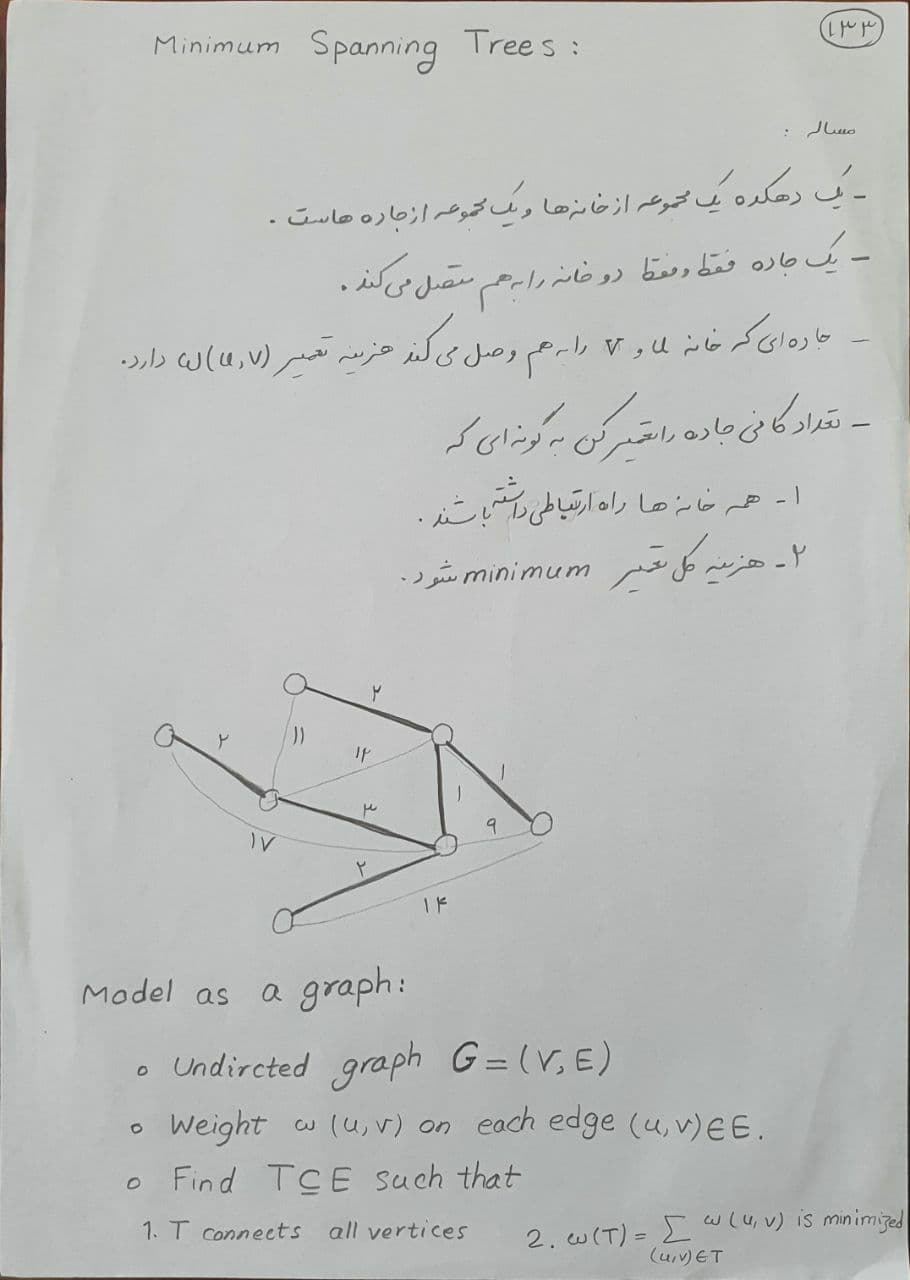 ۱۳۳
Minimum Spanning Trees :
مساله :
- یک دهکده یک مجموعه از خانه‌ها و یک مجموعه از جاده هاست .
- یک جاده فقط و فقط دو خانه را به هم متصل می‌کند .
- جاده‌ای که خانه u و v را به هم وصل می‌کند هزینه تعمیر w(u,v) دارد.
- تعداد کافی جاده را تعمیر کن به گونه‌ای که
۱- همه خانه ها راه ارتباطی داشته باشند .
۲- هزینه کل تعمیر minimum شود .
۲
۲
۱۱
۱۲
۱
۱
۳
۹
۱۷
۲
۱۴
Model as a graph:
o Undircted graph G=(V,E)
o Weight w(u,v) on each edge (u,v)∈E.
o Find T⊆E such that
1. T connects all vertices 2. w(T) = ∑ w(u,v) is minimized
(u,v)∈T